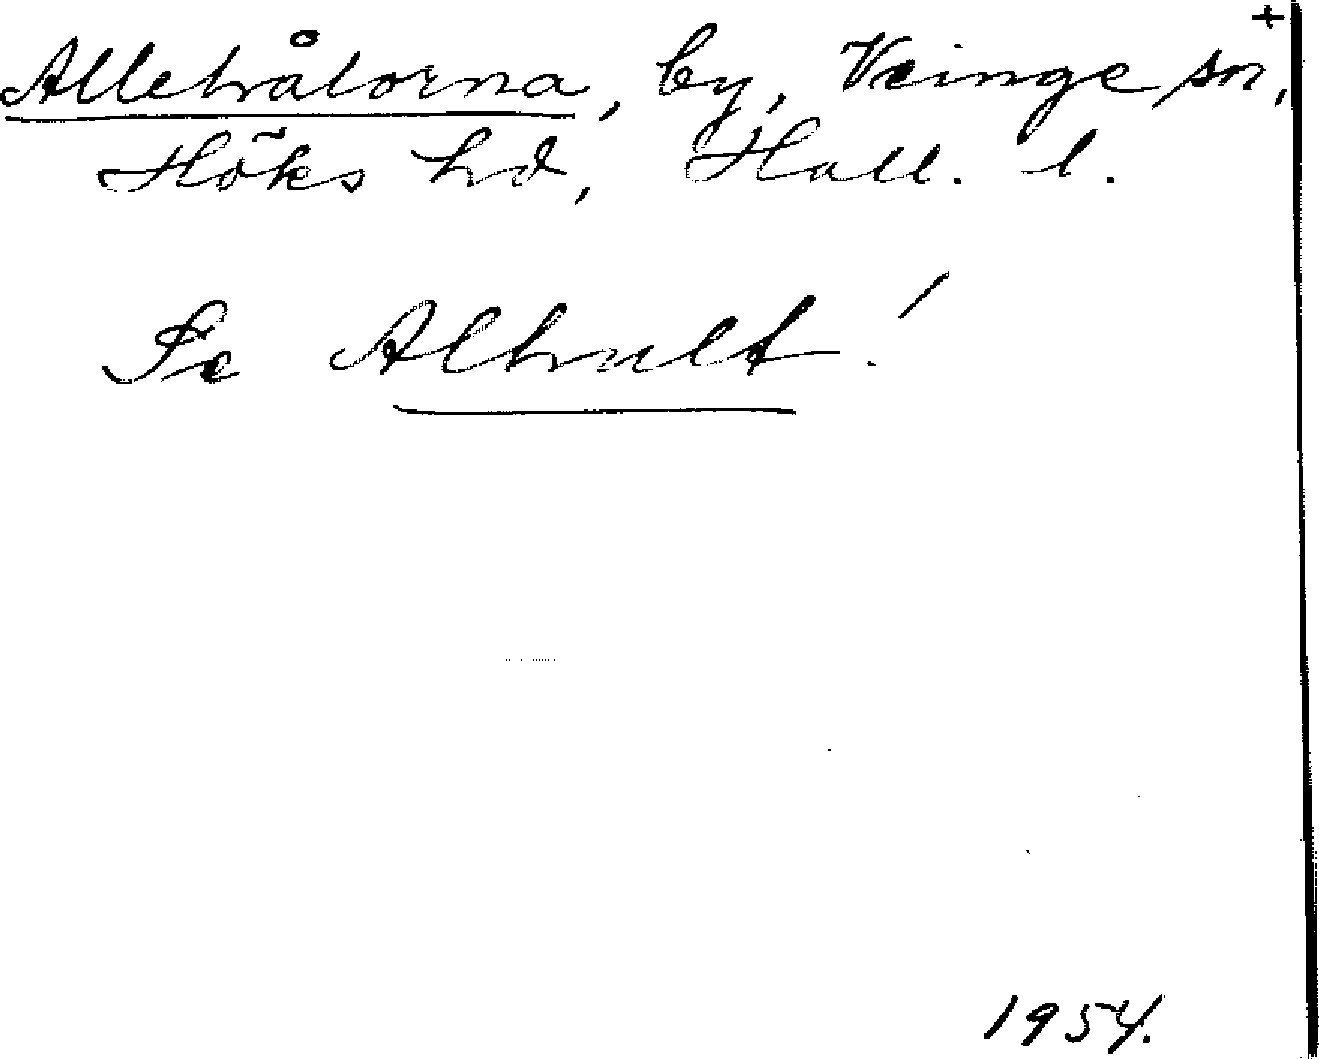 +
Allehålorna, by, Veinge sn,
Höks hd, Hall. l.
Se Alhult!
1954.